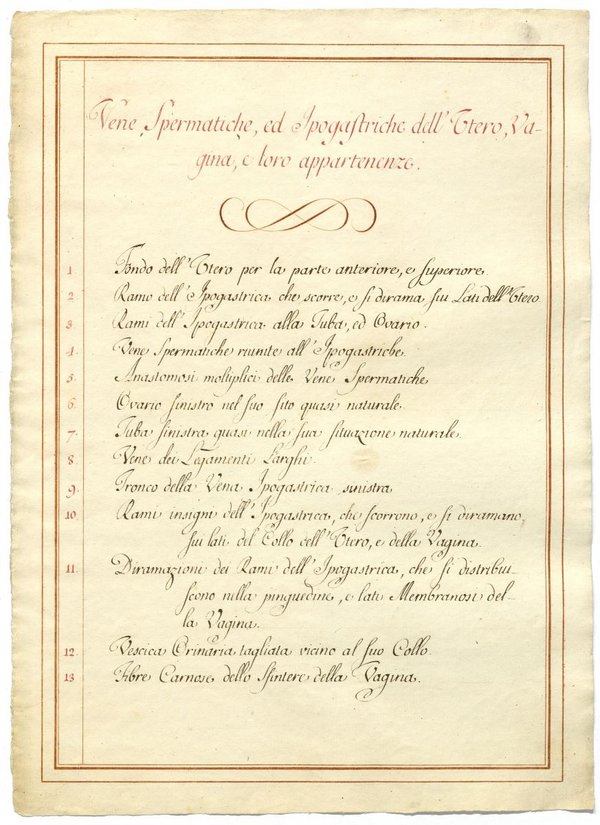 Vene Spermatiche, ed Ipogastriche dell'Utero, Va-
gina, e loro appartenenze.
1 Fondo dell'Utero per la parte anteriore, e superiore
2 Ramo dell'Ipogastrica che scorre, e si dirama sui Lati dell'Utero
3 Rami dell'Ipogastrica alla Tuba, ed Ovario.
4. Vene Spermatiche riunite all'Ipogastriche.
5. Anastomosi moltiplici delle Vene Spermatiche
6. Ovario sinistro nel suo sito quasi naturale
7. Tuba sinistra quasi nella sua situazione naturale.
8 Vene dei Legamenti Larghi.
9. Tronco della Vena Ipogastrica sinistra
10. Rami insigni dell'Ipogastrica, che scorrono, e si diramano,
sui lati del Collo dell'Utero, e della Vagina.
11. Diramazioni dei Rami dell'Ipogastrica, che si distribui
scono nella pinguedine, e lati Membranosi del-
la Vagina.
12 Vescica Orinaria tagliata vicino al suo Collo.
13 Fibre Carnose dello Sfintere della Vagina.